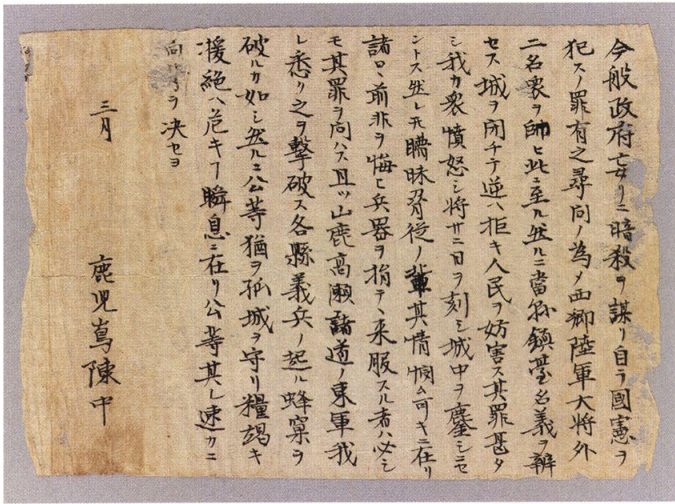 今般政府妄リニ暗殺ヲ謀リ自ラ國憲ヲ
犯スノ罪有之尋問ノ為メ西郷陸軍大将外
二名衆ヲ帥ヒ此ニ至ル然ルニ當縣鎮臺名義ヲ辨
セス城ヲ閉チテ逆ヘ拒キ人民ヲ妨害ス其罪甚タ
シ我カ衆憤怒シ将廿二日ヲ刻シ城中ヲ鏖ニセ
ントス然レ𪜈曚昧脅従ノ輩其情憫ム可キニ在リ
諸口前非ヲ悔ヒ兵器ヲ捐テ、来服スル者ハ必シ
モ其罪ヲ問ハス且ツ山鹿高瀬諸道ノ東軍我
レ悉ク之ヲ撃破ス各縣義兵ノ起ル蜂窠ヲ
破ルカ如シ然ルニ公等猶ヲ孤城ヲ守リ糧竭キ
援絶ヘ危キヿ瞬息ニ在リ公等其レ速カニ
向ヲ決セヨ
三月
鹿児嶌陳中